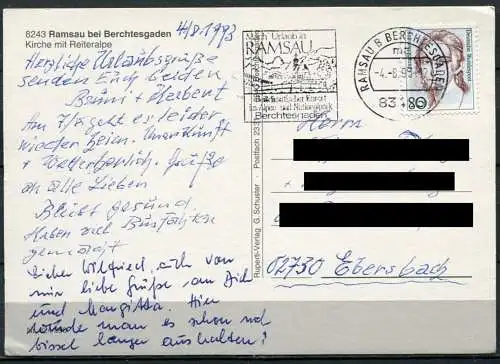 8243 Ramsau bei Berchtesgaden
Kirche mit Reiteralpe
4/8.1993
Herzliche Urlaubsgrüße
senden Euch beiden
Herbert
Am 7/8 geht es leider
wieder heim. Unterkunft
+ Wetter herrlich. Grüße
an alle Lieben
Bleibt gesund.
Haben auch Busfahrten
gemacht
Lieber Wilfried, auch von
mir liebe Grüße an Dich
und Margitta. Hier
könnte man es schon noch
bissel länger aushalten!
Ruperti-Verlag G. Schuster · Postfach 23
Mach Urlaub in
RAMSAU
Berchtesgaden
RAMSAU B BERCHTESGADEN
-4.-8.93
Deutsche Bundespost
80
Herrn
02730 Ebersbach